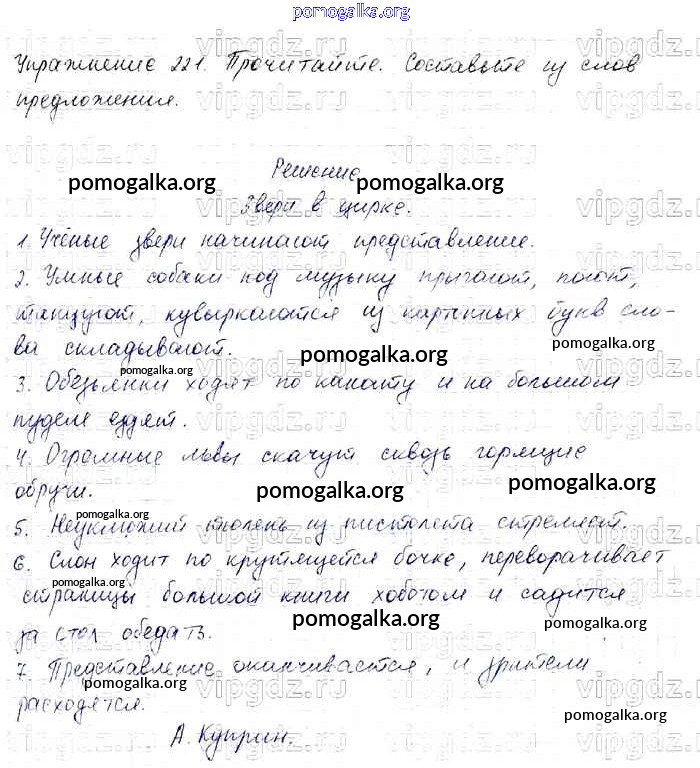 pomogalka.org
Упражнение 221. Прочитайте. Составьте из слов
предложения.
Решение
pomogalka.org pomogalka.org
Звери в цирке.
1. Учёные звери начинают представление.
2. Умные собаки под музыку прыгают, поют,
танцуют, кувыркаются из картонных букв сло-
ва складывают.
pomogalka.org pomogalka.org
3. Обезьянки ходят по канату и на большом
пуделе ездят.
4. Огромные львы скачут сквозь горящие
обручи.
pomogalka.org pomogalka.org
pomogalka.org
5. Неуклюжий тюлень из пистолета стреляет.
6. Слон ходит по крутящейся бочке, переворачивает
pomogalka.org
страницы большой книги хоботом и садится
pomogalka.org
за стол обедать.
7. Представление оканчивается, и зрители
pomogalka.org
расходятся.
pomogalka.org
А. Куприн.
vipgdz.ru